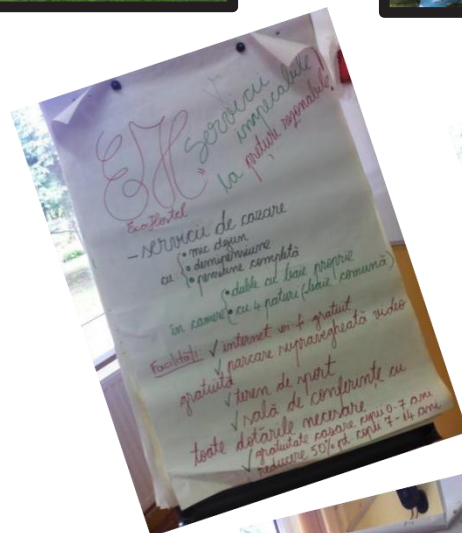 EH "Servicii
impecabile
la prețuri rezonabile!
EcoHostel
- servicii de cazare
cu • mic dejun
• demipensiune
• pensiune completă
în camere • duble cu baie proprie
• cu 4 paturi (baie comună)
Facilități: ✓ internet wi-fi gratuit
✓ parcare supravegheată video
gratuită
✓ teren de sport
✓ sală de conferințe cu
toate dotările necesare
✓ gratuitate cazare copii 0-7 ani
✓ reducere 50% pt. copii 7-14 ani